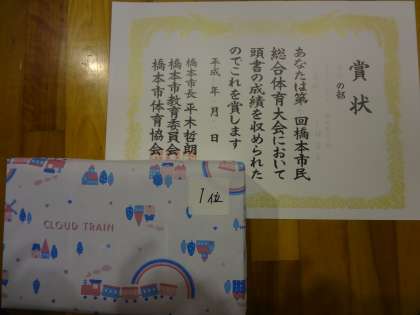 賞状
の部
あなたは第 回橋本市民
総合体育大会において
頭書の成績を収められた
のでこれを賞します
平成 年 月 日
橋本市長 平木哲朗
橋本市教育委員会
橋本市体育協会
1位
CLOUD TRAIN